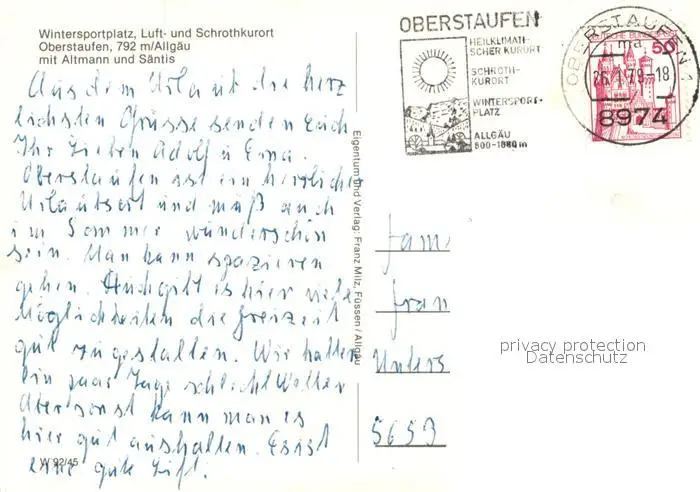 Wintersportplatz, Luft- und Schrothkurort
Oberstaufen, 792 m/Allgäu
mit Altmann und Säntis
Aus dem Urlaub die herz
lichsten Grüsse senden Euch
Ihr Lieben Adolf u Erna.
Oberstaufen ist ein herrlicher
Urlaubsort und muß auch
im Sommer wunderschön
sein. Man kann spazieren
gehen. Auch gibt es hier viele
Möglichkeiten die Freizeit
gut zu gestalten. Wir hatten
ein paar Tage schlecht Wetter
Aber sonst kann man es
hier gut aushalten. Es ist
eine gute Luft.
W 92/45
Eigentum und Verlag: Franz Milz, Füssen/Allgäu
OBERSTAUFEN
HEILKLIMATI-
SCHER KURORT
SCHROTH-
KURORT
WINTERSPORT-
PLATZ
ALLGÄU
800-1880 m
OBERSTAUFEN 1
ma
26.1.79-18
8974
50
Fam
Fran
Unters
5653
privacy protection
Datenschutz